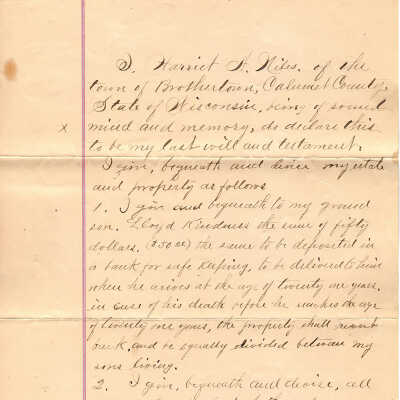 I, Harriet A. Niles, of the
town of Brothertown, Calumet County,
State of Wisconsin, being of sound
x mind and memory, do declare this
to be my last will and testament.
I give, bequeath and devise my estate
and property as follows
1. I give and bequeath to my grand
son, Lloyd Kindness the sum of fifty
dollars, ($50.00) the same to be deposited in
a bank for safe keeping, to be delivered to him
when he arrives at the age of twenty one years,
in case of his death before he reaches the age
of twenty one years, the property shall revert
back, and be equally divided between my
sons living.
2. I give, bequeath and devise, all